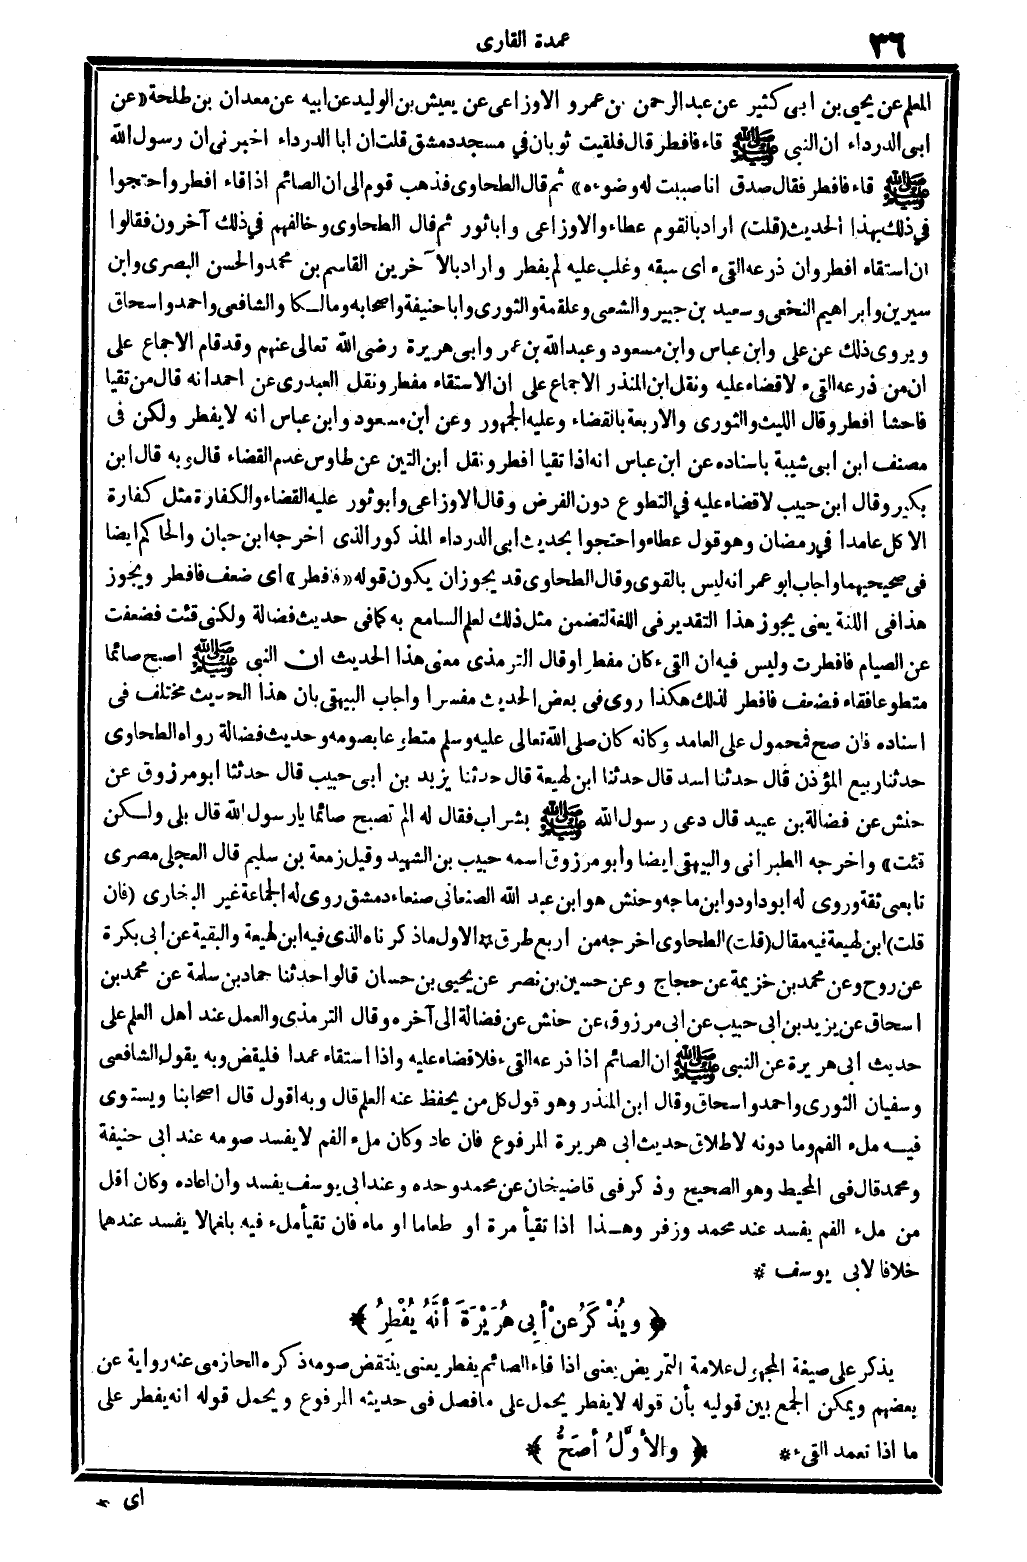 ٣٦
عمدة القارى
المعلم عن يحيى بن ابى كثير عن عبد الرحمن بن عمرو الاوزاعى عن يعيش بن الوليد عن ابيه عن معدان بن طلحة «عن
ابى الدرداء ان النبى ﷺ قاء فافطر قال فلقيت ثوبان في مسجد دمشق قلت ان ابا الدرداء اخبرنى ان رسول الله
ﷺ قاء فافطر فقال صدق انا صببت له وضوءه» ثم قال الطحاوى فذهب قوم الى ان الصائم اذا قاء افطر واحتجوا
في ذلك بهذا الحديث (قلت) اراد بالقوم عطاء والاوزاعى وابا ثور ثم قال الطحاوى وخالفهم في ذلك آخرون فقالوا
ان استقاء افطر وان ذرعه القىء اى سبقه وغلب عليه لم يفطر واراد بالآخرين القاسم بن محمد والحسن البصرى وابن
سيرين وابراهيم النخعى وسعيد بن جبير والشعبى وعلقمة والثورى وابا حنيفة واصحابه ومالكا والشافعى واحمد واسحاق
ويروى ذلك عن على وابن عباس وابن مسعود وعبد الله بن عمر وابى هريرة رضى الله تعالى عنهم وقد قام الاجماع على
ان من ذرعه القىء لا قضاء عليه ونقل ابن المنذر الاجماع على ان الاستقاء مفطر ونقل العبدرى عن احمد انه قال من تقيا
فاحشا افطر وقال الليث والثورى والاربعة بالقضاء وعليه الجمهور وعن ابن مسعود وابن عباس انه لا يفطر ولكن فى
مصنف ابن ابى شيبة باسناده عن ابن عباس انه اذا تقيا افطر ونقل ابن التين عن طاوس عدم القضاء قال وبه قال ابن
بكير وقال ابن حبيب لا قضاء عليه في التطوع دون الفرض وقال الاوزاعى وابو ثور عليه القضاء والكفارة مثل كفارة
الاكل عامدا في رمضان وهو قول عطاء واحتجوا بحديث ابى الدرداء المذكور الذى اخرجه ابن حبان والحاكم ايضا
فى صحيحيهما واجاب ابو عمر انه ليس بالقوى وقال الطحاوى قد يجوز ان يكون قوله «فافطر» اى ضعف فافطر ويجوز
هذا فى اللغة يعنى يجوز هذا التقدير فى اللغة لتضمن مثل ذلك لعلم السامع به كما فى حديث فضالة ولكنى قئت فضعفت
عن الصيام فافطرت وليس فيه ان القىء كان مفطرا وقال الترمذى معنى هذا الحديث ان النبى ﷺ اصبح صائما
متطوعا فقاء فضعف فافطر لذلك هكذا روى فى بعض الحديث مفسرا واجاب البيهقى بان هذا الحديث مختلف فى
اسناده فان صح فمحمول على العامد وكانه كان صلى الله تعالى عليه وسلم متطوعا بصومه وحديث فضالة رواه الطحاوى
حدثنا ربيع المؤذن قال حدثنا اسد قال حدثنا ابن لهيعة قال حدثنا يزيد بن ابى حبيب قال حدثنا ابو مرزوق عن
حنش عن فضالة بن عبيد قال دعى رسول الله ﷺ بشراب فقال له الم تصبح صائما يا رسول الله قال بلى ولكن
قئت» واخرجه الطبرانى والبيهقى ايضا وأبو مرزوق اسمه حبيب بن الشهيد وقيل زمعة بن سليم قال العجلى مصرى
تابعى ثقة وروى له ابو داود وابن ماجه وحنش هو ابن عبد الله الصنعانى صنعاء دمشق روى له الجماعة غير البخارى (فان
قلت) ابن لهيعة فيه مقال (قلت) الطحاوى اخرجه من اربع طرق * الاول ما ذكرناه الذى فيه ابن لهيعة والبقية عن ابى بكرة
عن روح وعن محمد بن خزيمة عن حجاج وعن حسين بن نصر عن يحيى بن حسان قالوا حدثنا حماد بن سلمة عن محمد بن
اسحاق عن يزيد بن ابى حبيب عن ابى مرزوق عن حنش عن فضالة الى آخره وقال الترمذى والعمل عند أهل العلم على
حديث ابى هريرة عن النبى ﷺ ان الصائم اذا ذرعه القىء فلا قضاء عليه واذا استقاء عمدا فليقض وبه يقول الشافعى
وسفيان الثورى واحمد واسحاق وقال ابن المنذر وهو قول كل من يحفظ عنه العلم قال وبه اقول قال اصحابنا ويستوى
فيه ملء الفم وما دونه لاطلاق حديث ابى هريرة المرفوع فان عاد وكان ملء الفم لا يفسد صومه عند ابى حنيفة
ومحمد قال فى المحيط وهو الصحيح وذكر فى قاضيخان عن محمد وحده وعند ابى يوسف يفسد وأن اعاده وكان أقل
من ملء الفم يفسد عند محمد وزفر وهذا اذا تقيأ مرة او طعاما او ماء فان تقيأ ملء فيه بلغما لا يفسد عندهما
خلافا لابى يوسف *
﴿ ويُذْكَرُ عنْ أبِى هُرَيْرَةَ أنَّهُ يُفْطِرُ ﴾
يذكر على صيغة المجهول علامة التمريض يعنى اذا قاء الصائم يفطر يعنى ينتقض صومه ذكره الحازمى عنه رواية عن
بعضهم ويمكن الجمع بين قوليه بأن قوله لا يفطر يحمل على ما فصل فى حديثه المرفوع ويحمل قوله انه يفطر على
ما اذا تعمد القىء * ﴿ والأوَّلُ أصَحُّ ﴾ *
اى *